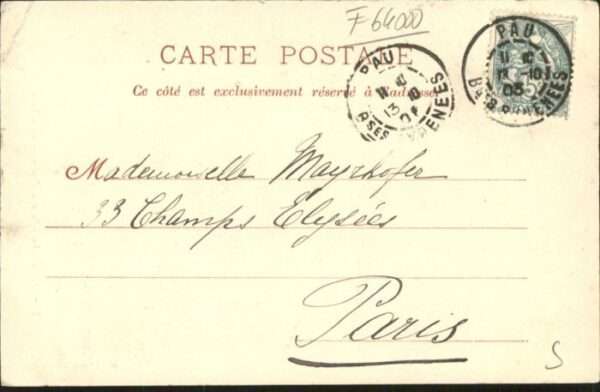 F 64000
CARTE POSTALE
Ce côté est exclusivement réservé à l'adresse
PAU
BSES PYRENEES
PAU
11 E
13 -10
03
BSES PYRENEES
Mademoiselle Mayrhofer
33 Champs Elysées
Paris
S